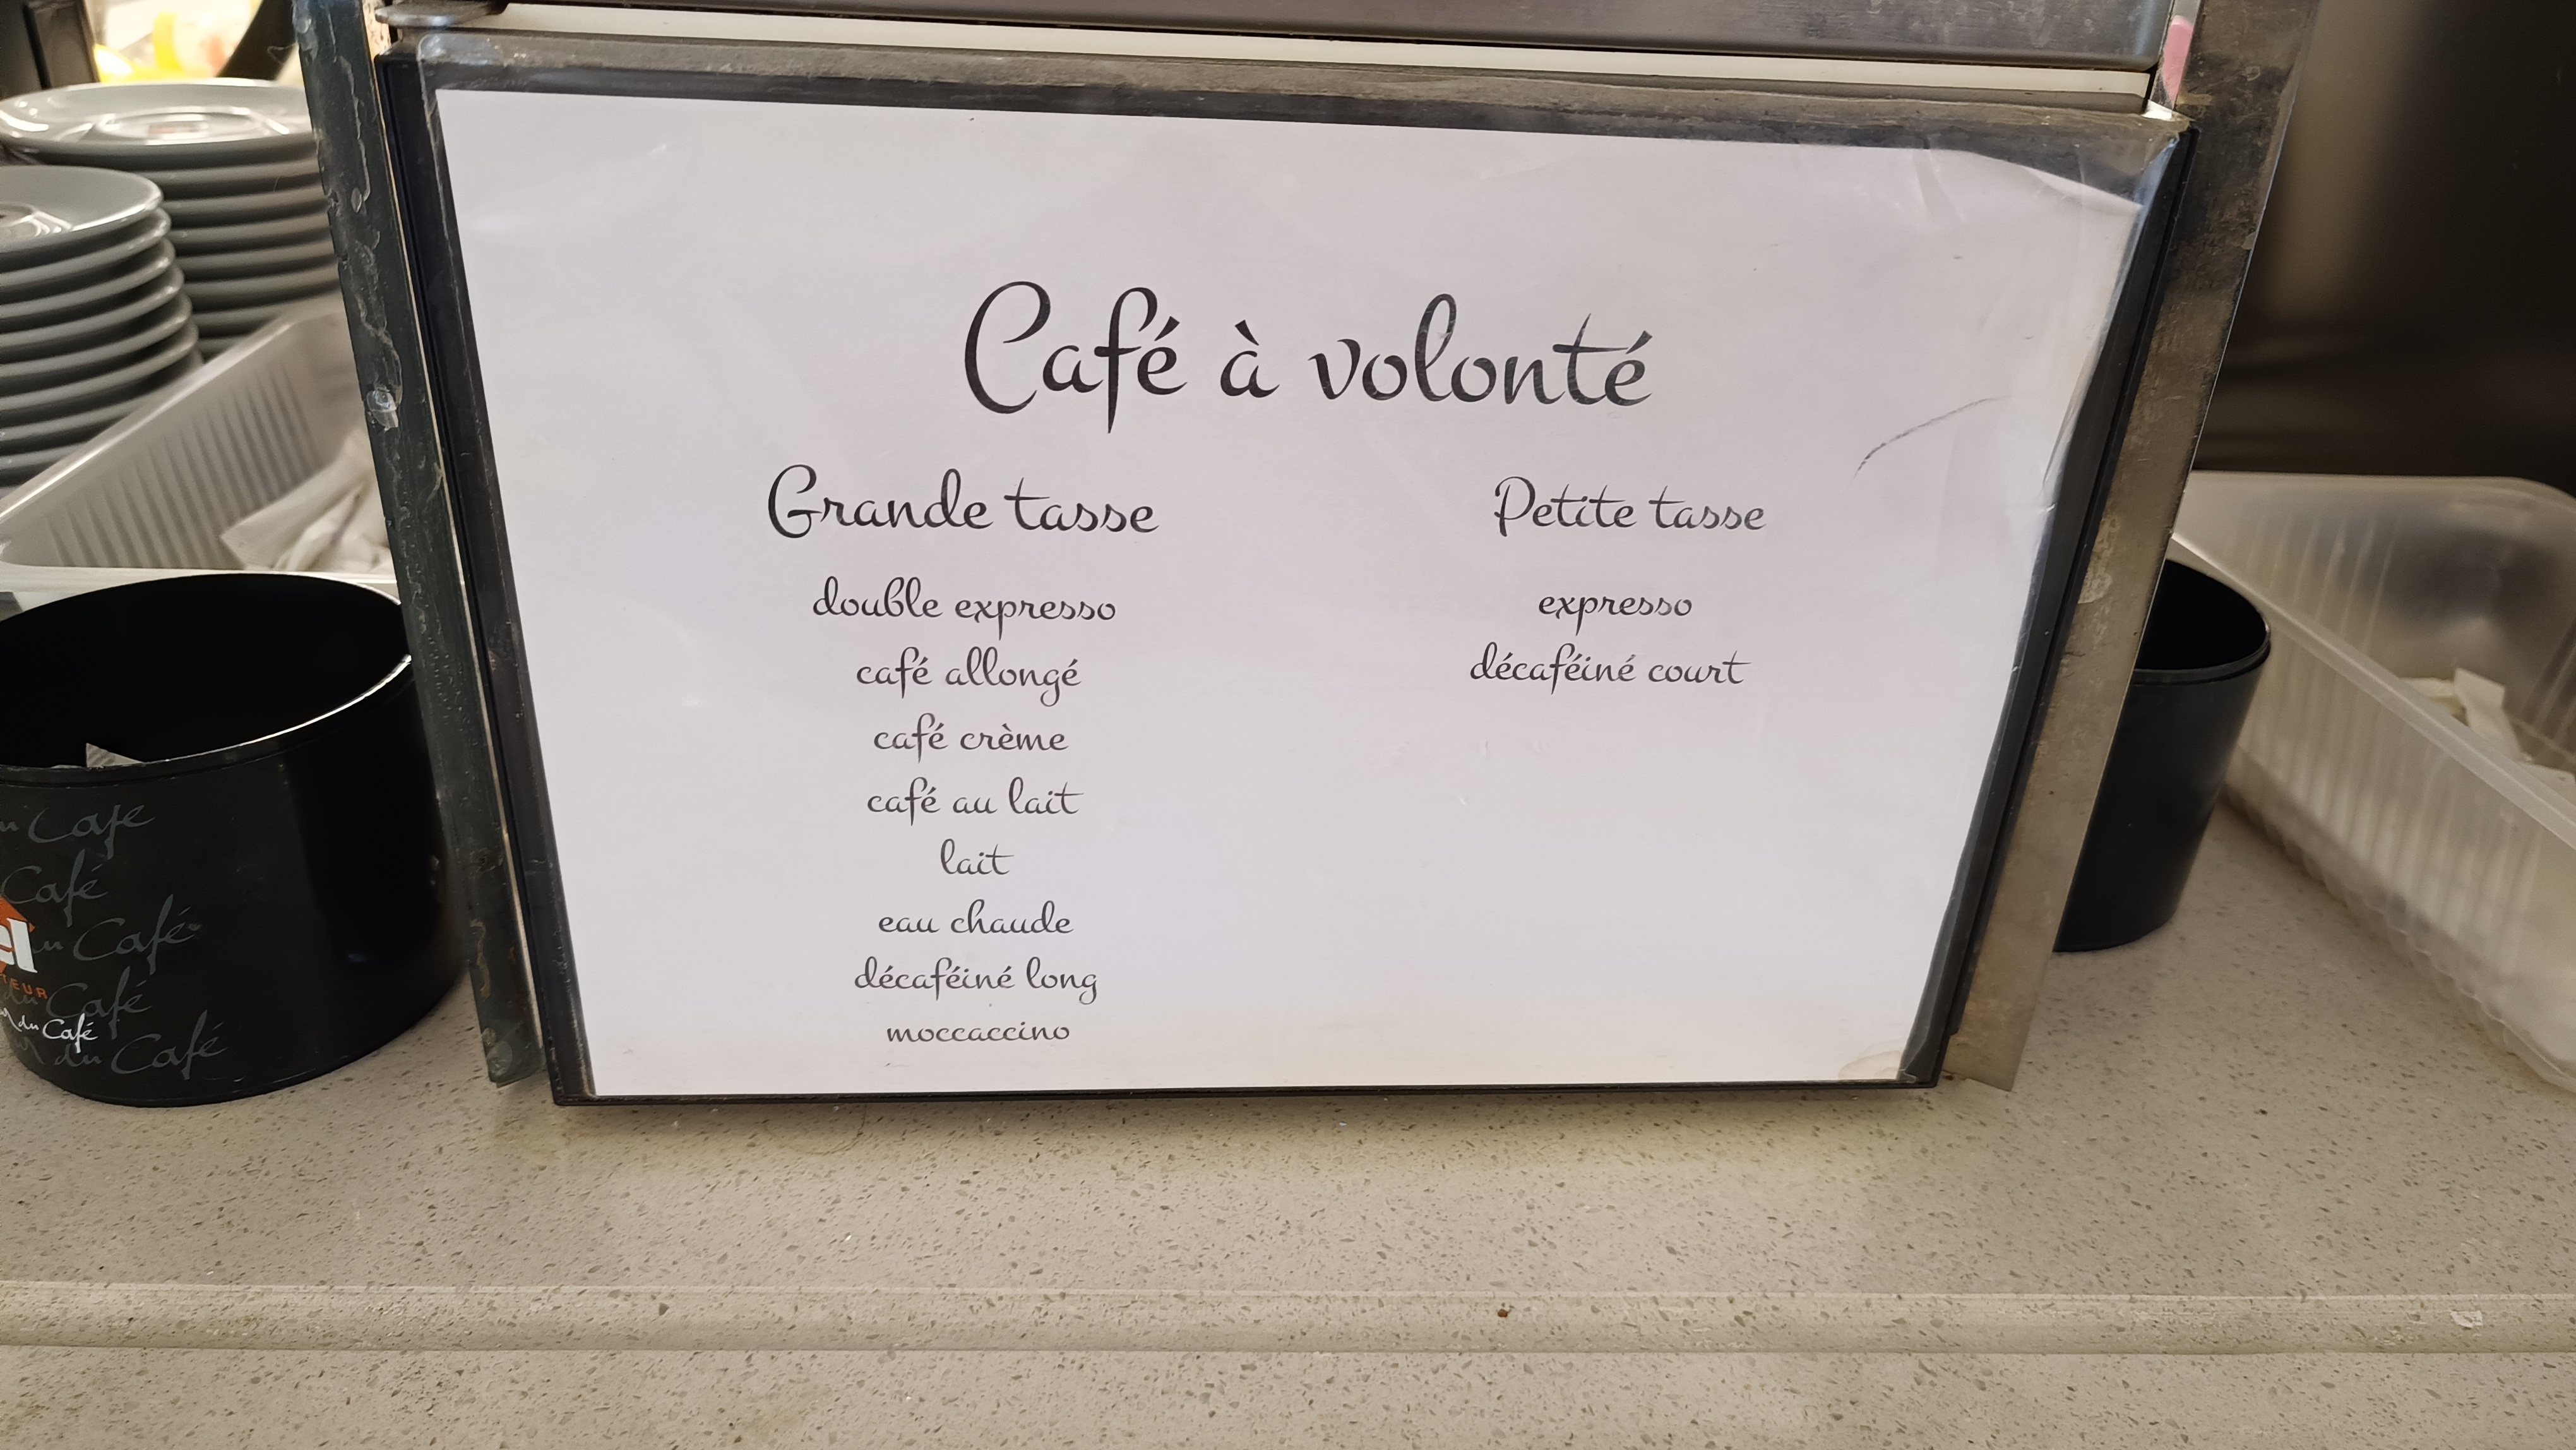 Café à volonté
Grande tasse
double expresso
café allongé
café crème
café au lait
lait
eau chaude
décaféiné long
moccaccino
Petite tasse
expresso
décaféiné court
Café
Café
Café
Café
du Café
du Café